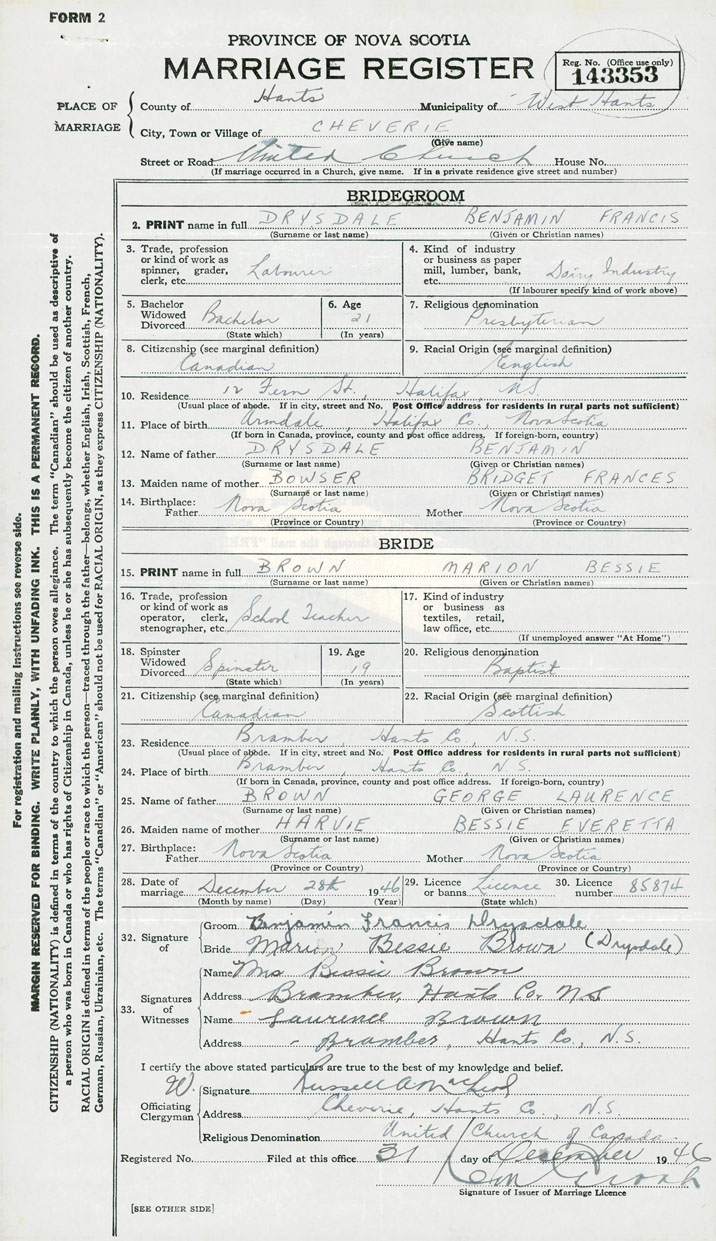 FORM 2
PROVINCE OF NOVA SCOTIA
MARRIAGE REGISTER
Reg. No. (Office use only)
143353
PLACE OF MARRIAGE
County of Hants Municipality of West Hants
City, Town or Village of CHEVERIE
(Give name)
Street or Road United Church House No.
(If marriage occurred in a Church, give name. If in a private residence give street and number)
BRIDEGROOM
2. PRINT name in full DRYSDALE BENJAMIN FRANCIS
(Surname or last name) (Given or Christian names)
3. Trade, profession or kind of work as spinner, grader, clerk, etc. Labourer
4. Kind of industry or business as paper mill, lumber, bank, etc. Dairy Industry
(If labourer specify kind of work above)
5. Bachelor Widowed Divorced Bachelor
(State which)
6. Age 21
(In years)
7. Religious denomination
Presbyterian
8. Citizenship (see marginal definition)
Canadian
9. Racial Origin (see marginal definition)
English
10. Residence 12 Fern St., Halifax, N.S.
(Usual place of abode. If in city, street and No. Post Office address for residents in rural parts not sufficient)
11. Place of birth Armdale, Halifax Co., Nova Scotia
(If born in Canada, province, county and post office address. If foreign-born, country)
12. Name of father DRYSDALE BENJAMIN
(Surname or last name) (Given or Christian names)
13. Maiden name of mother BOWSER BRIDGET FRANCES
(Surname or last name) (Given or Christian names)
14. Birthplace: Father Nova Scotia Mother Nova Scotia
(Province or Country) (Province or Country)
BRIDE
15. PRINT name in full BROWN MARION BESSIE
(Surname or last name) (Given or Christian names)
16. Trade, profession or kind of work as operator, clerk, stenographer, etc. School Teacher
17. Kind of industry or business as textiles, retail, law office, etc.
(If unemployed answer "At Home")
18. Spinster Widowed Divorced Spinster
(State which)
19. Age 19
(In years)
20. Religious denomination
Baptist
21. Citizenship (see marginal definition)
Canadian
22. Racial Origin (see marginal definition)
Scottish
23. Residence Bramber, Hants Co., N.S.
(Usual place of abode. If in city, street and No. Post Office address for residents in rural parts not sufficient)
24. Place of birth Bramber, Hants Co., N.S.
(If born in Canada, province, county and post office address. If foreign-born, country)
25. Name of father BROWN GEORGE LAURENCE
(Surname or last name) (Given or Christian names)
26. Maiden name of mother HARVIE BESSIE EVERETTA
(Surname or last name) (Given or Christian names)
27. Birthplace: Father Nova Scotia Mother Nova Scotia
(Province or Country) (Province or Country)
28. Date of marriage December 28th 1946 29. Licence or banns Licence 30. Licence number 85874
(Month by name) (Day) (Year) (State which)
32. Signature of
Groom Benjamin Francis Drysdale
Bride Marion Bessie Brown (Drysdale)
33. Signatures of Witnesses
Name Mrs Bessie Brown
Address Bramber, Hants Co. N S
Name Laurence Brown
Address Bramber, Hants Co., N.S.
I certify the above stated particulars are true to the best of my knowledge and belief.
Officiating Clergyman
Signature W. Russell A MacLeod
Address Cheverie, Hants Co., N.S.
Religious Denomination United Church of Canada.
Registered No. Filed at this office 31 day of December 1946
Signature of Issuer of Marriage Licence
[SEE OTHER SIDE]
For registration and mailing instructions see reverse side.
MARGIN RESERVED FOR BINDING. WRITE PLAINLY, WITH UNFADING INK. THIS IS A PERMANENT RECORD.
CITIZENSHIP (NATIONALITY) is defined in terms of the country to which the person owes allegiance. The term "Canadian" should be used as descriptive of
a person who was born in Canada or who has rights of Citizenship in Canada, unless he or she has subsequently become the citizen of another country.
RACIAL ORIGIN is defined in terms of the people or race to which the person—traced through the father—belongs, whether English, Irish, Scottish, French,
German, Russian, Ukrainian, etc. The terms "Canadian" or "American" should not be used for RACIAL ORIGIN, as they express CITIZENSHIP (NATIONALITY).